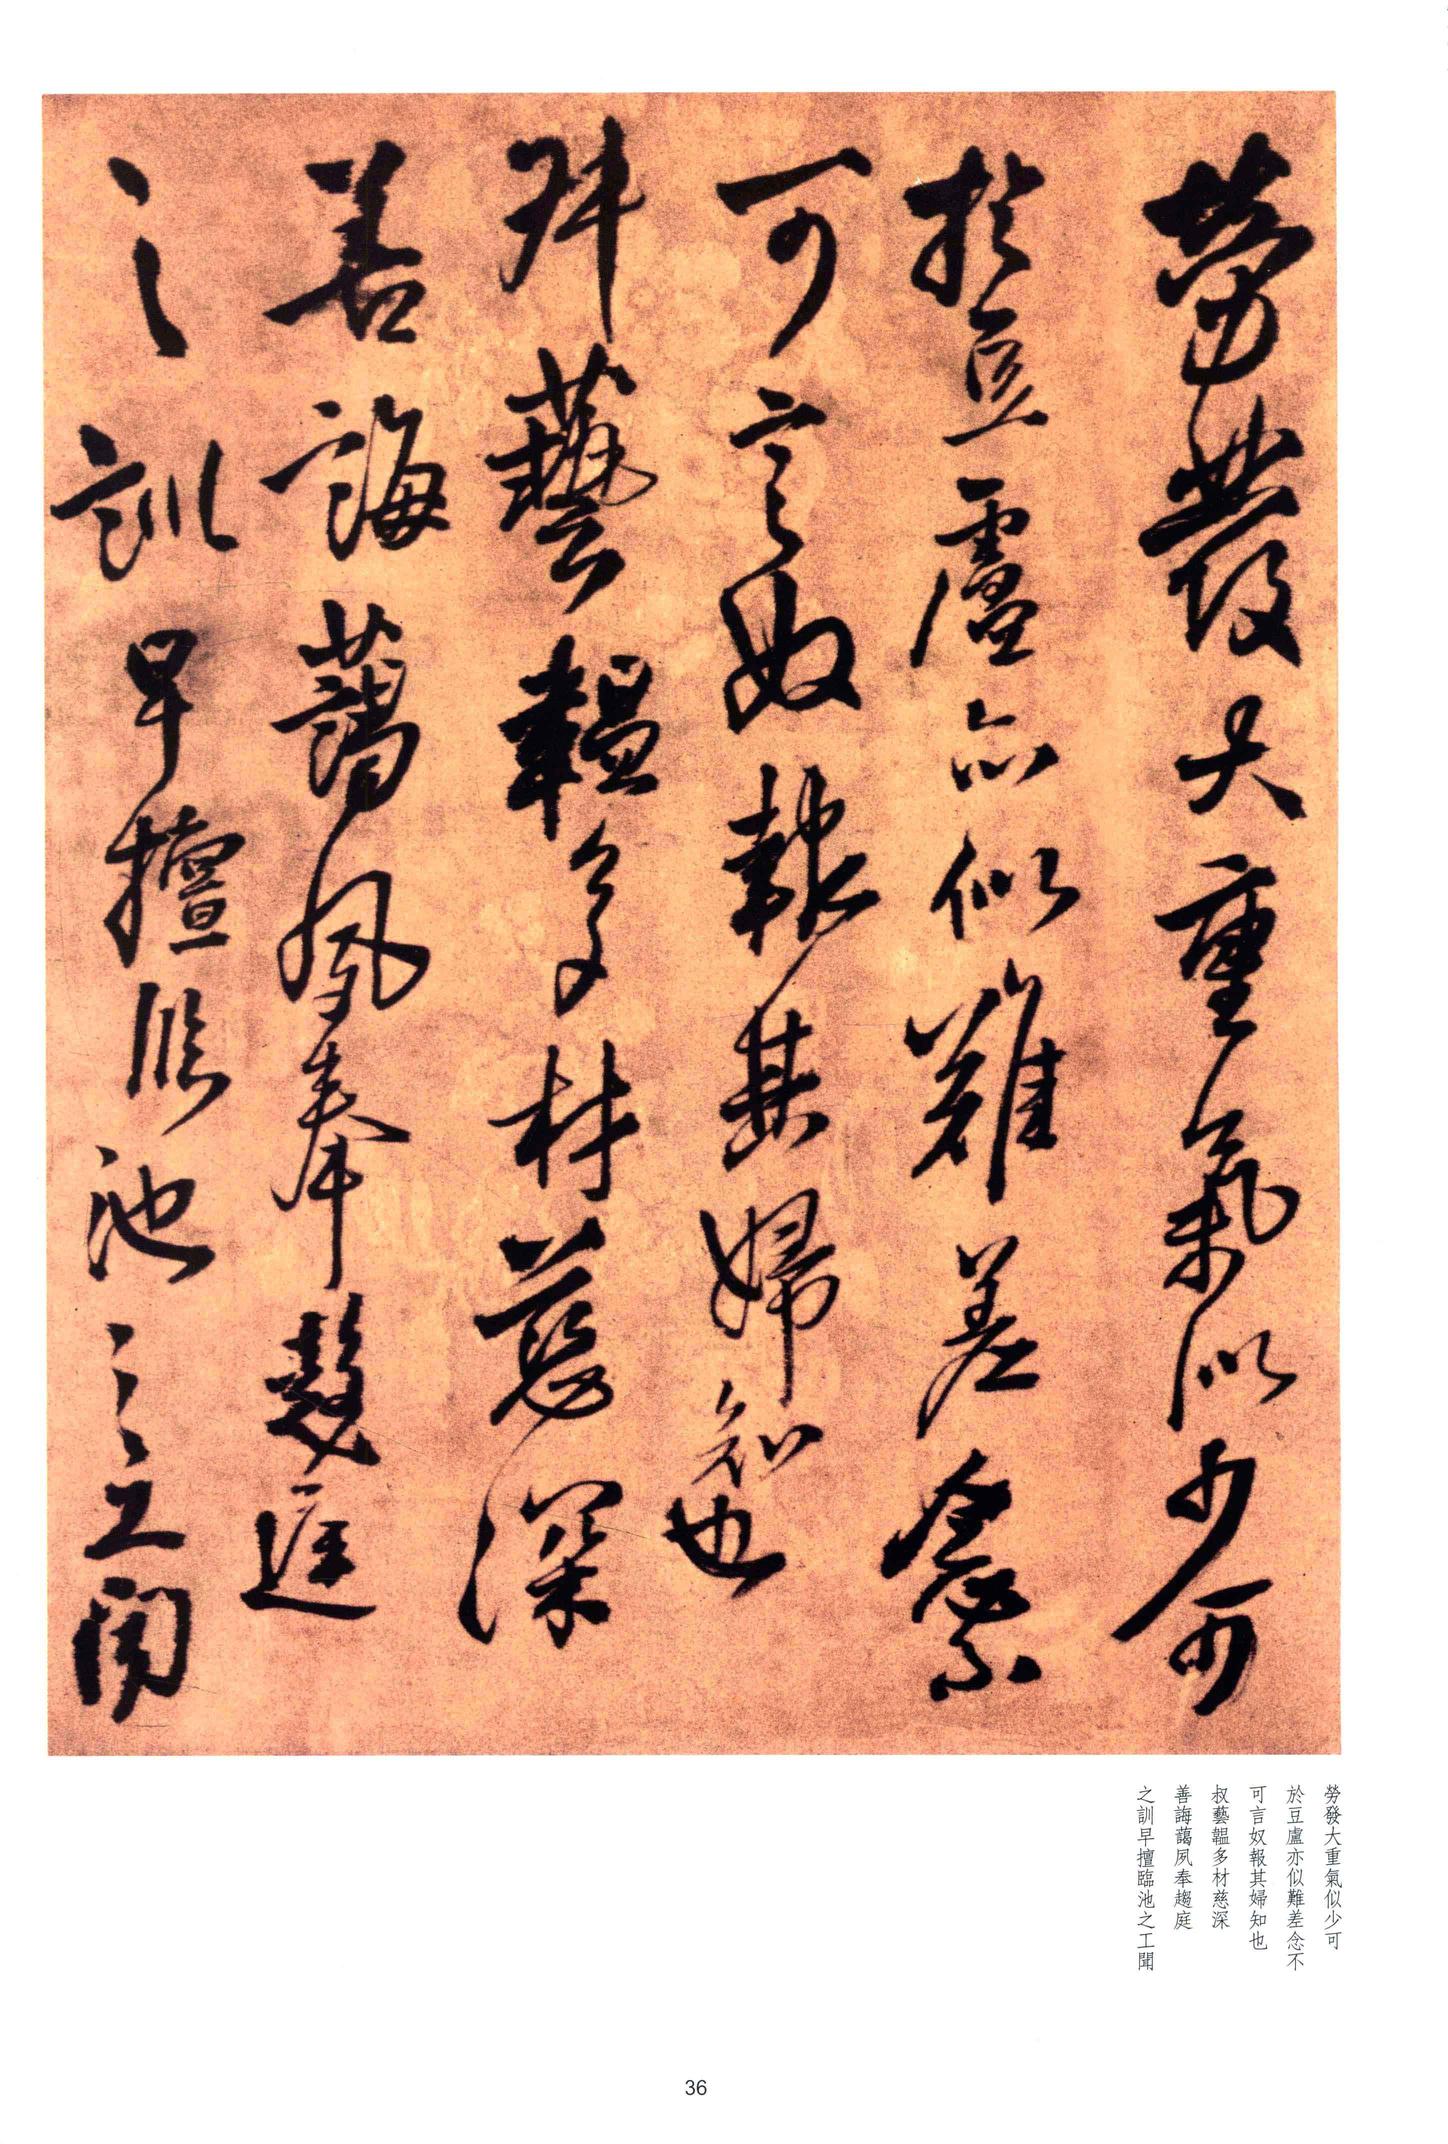 勞發大重氣似少可
於豆盧亦似難差念不
可言奴報其婦知也
叔藝韞多材慈深
善誨藹夙奉趨庭
之訓早擅臨池之工聞
勞發大重氣似少可
於豆盧亦似難差念不
可言奴報其婦知也
叔藝韞多材慈深
善誨藹夙奉趨庭
之訓早擅臨池之工聞
36